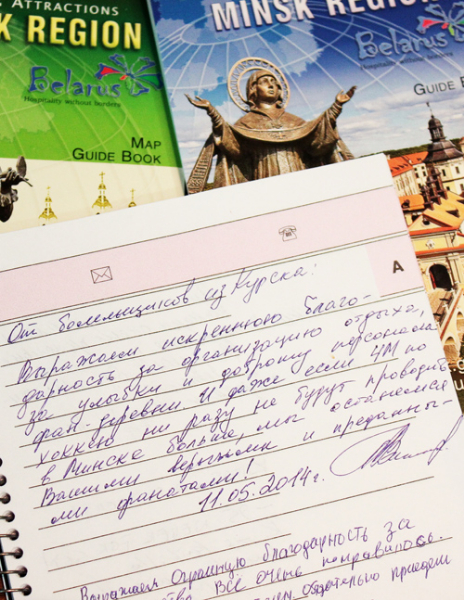 ATTRACTIONS
K REGION
Belarus
Hospitality without borders
MAP
GUIDE BOOK
MINSK REGION
Belarus
Hospitality without borders
GUIDE
A
От болельщиков из Курска:
Выражаем искреннюю благо-
дарность за организацию отдыха,
за улыбки и доброту персонала
фан-деревни. И даже если ЧМ по
хоккею ни разу не будут проводить
в Минске больше, мы останемся
Вашими верными и преданны-
ми фанатами!
11.05.2014г.
Выражаем огромную благодарность за
Все очень понравилось.
обязательно приедем